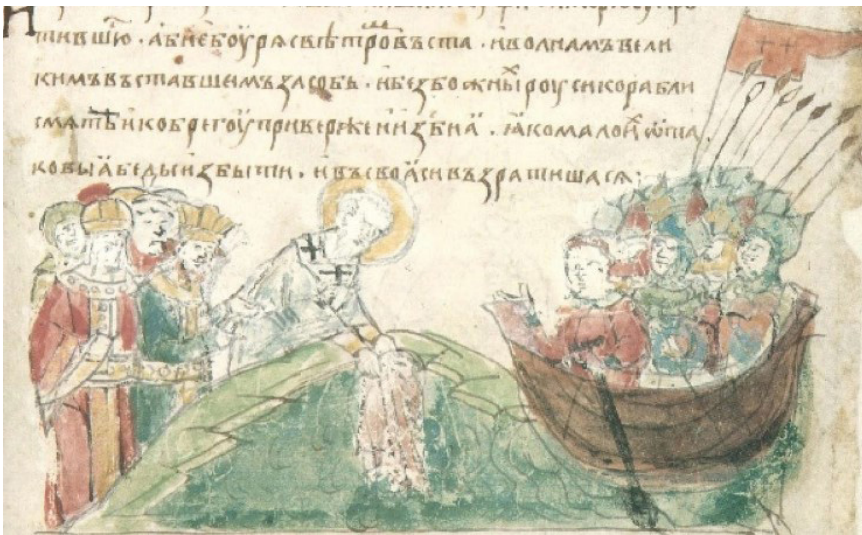 тившю . абие боурѧ свѣтроⷨ въста . и волнамъ вели
кимъ въставшемъ засобь . и безбожныⷯ роуси корабли
смѧте и к брегоу привержени изби а . ꙗко малоⷨ ѿ та
ковыа беды избыти . и въ своа си възратишасѧ .